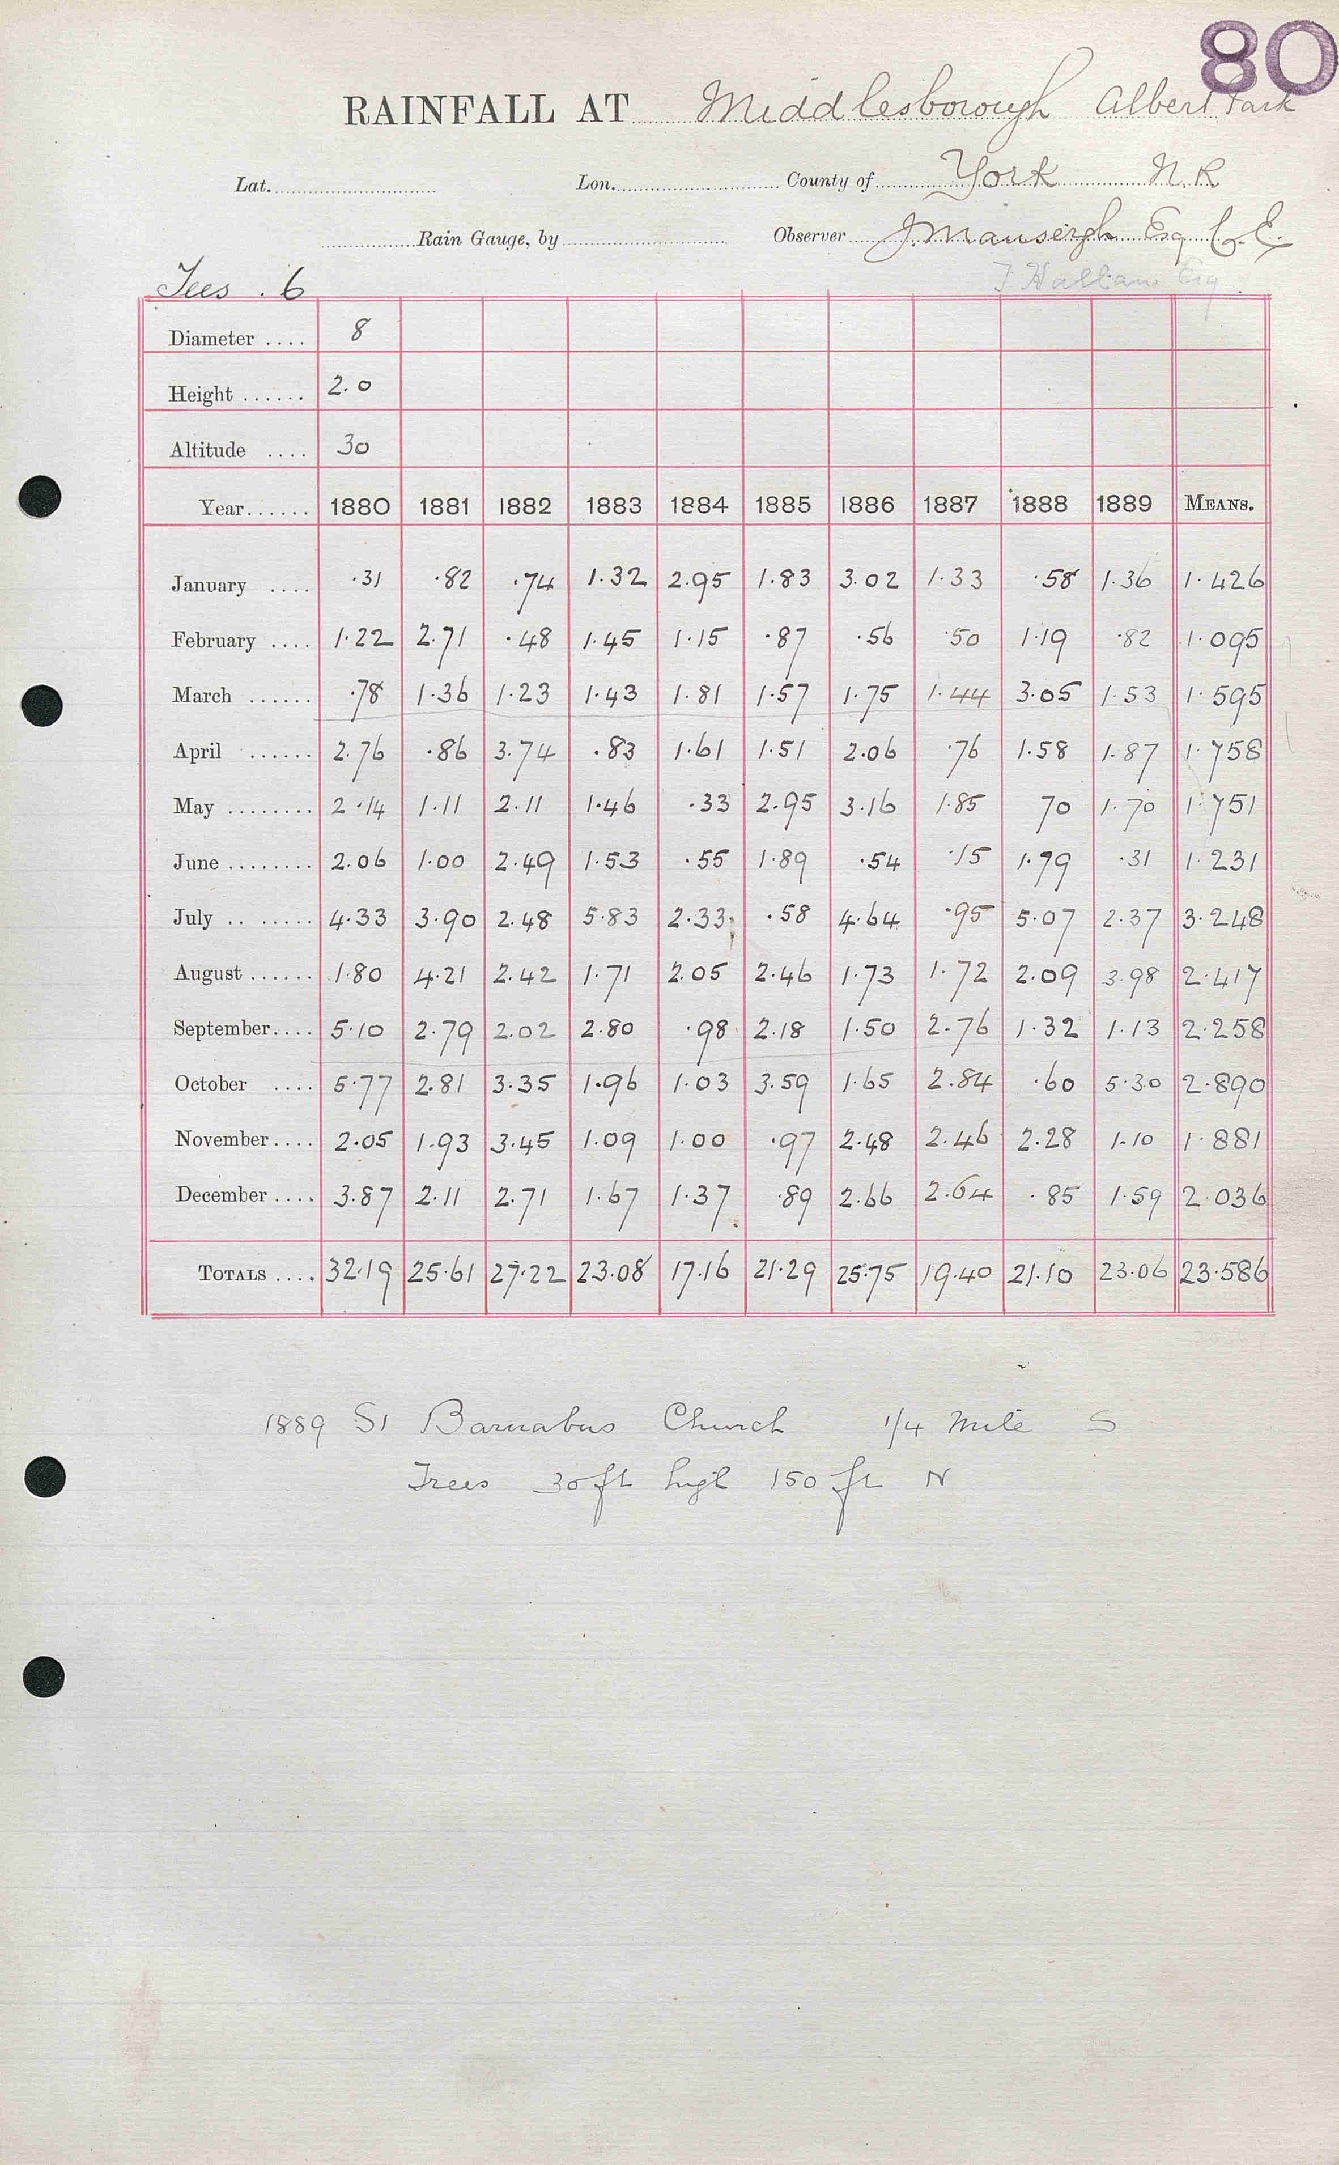 80
RAINFALL AT Middlesborough Albert Park
Lat. Lon. County of York N.R
Rain Gauge, by Observer J. Mansergh Esq C.E.
Tees . 6 T Hallam Esq
Diameter .... 8
Height ...... 2.0
Altitude .... 30
Year...... 1880 1881 1882 1883 1884 1885 1886 1887 1888 1889 MEANS.
January .... .31 .82 .74 1.32 2.95 1.83 3.02 1.33 .58 1.36 1.426
February .... 1.22 2.71 .48 1.45 1.15 .87 .56 .50 1.19 .82 1.095
March ...... .78 1.36 1.23 1.43 1.81 1.57 1.75 1.44 3.05 1.53 1.595
April ...... 2.76 .86 3.74 .83 1.61 1.51 2.06 .76 1.58 1.87 1.758
May ........ 2.14 1.11 2.11 1.46 .33 2.95 3.16 1.85 70 1.70 1.751
June ........ 2.06 1.00 2.49 1.53 .55 1.89 .54 .15 1.79 .31 1.231
July .. ...... 4.33 3.90 2.48 5.83 2.33 .58 4.64 .95 5.07 2.37 3.248
August ...... 1.80 4.21 2.42 1.71 2.05 2.46 1.73 1.72 2.09 3.98 2.417
September.... 5.10 2.79 2.02 2.80 .98 2.18 1.50 2.76 1.32 1.13 2.258
October .... 5.77 2.81 3.35 1.96 1.03 3.59 1.65 2.84 .60 5.30 2.890
November.... 2.05 1.93 3.45 1.09 1.00 .97 2.48 2.46 2.28 1.10 1.881
December .... 3.87 2.11 2.71 1.67 1.37 .89 2.66 2.64 .85 1.59 2.036
TOTALS .... 32.19 25.61 27.22 23.08 17.16 21.29 25.75 19.40 21.10 23.06 23.586
1889 St Barnabus Church 1/4 Mile S
Trees 30 ft high 150 ft N